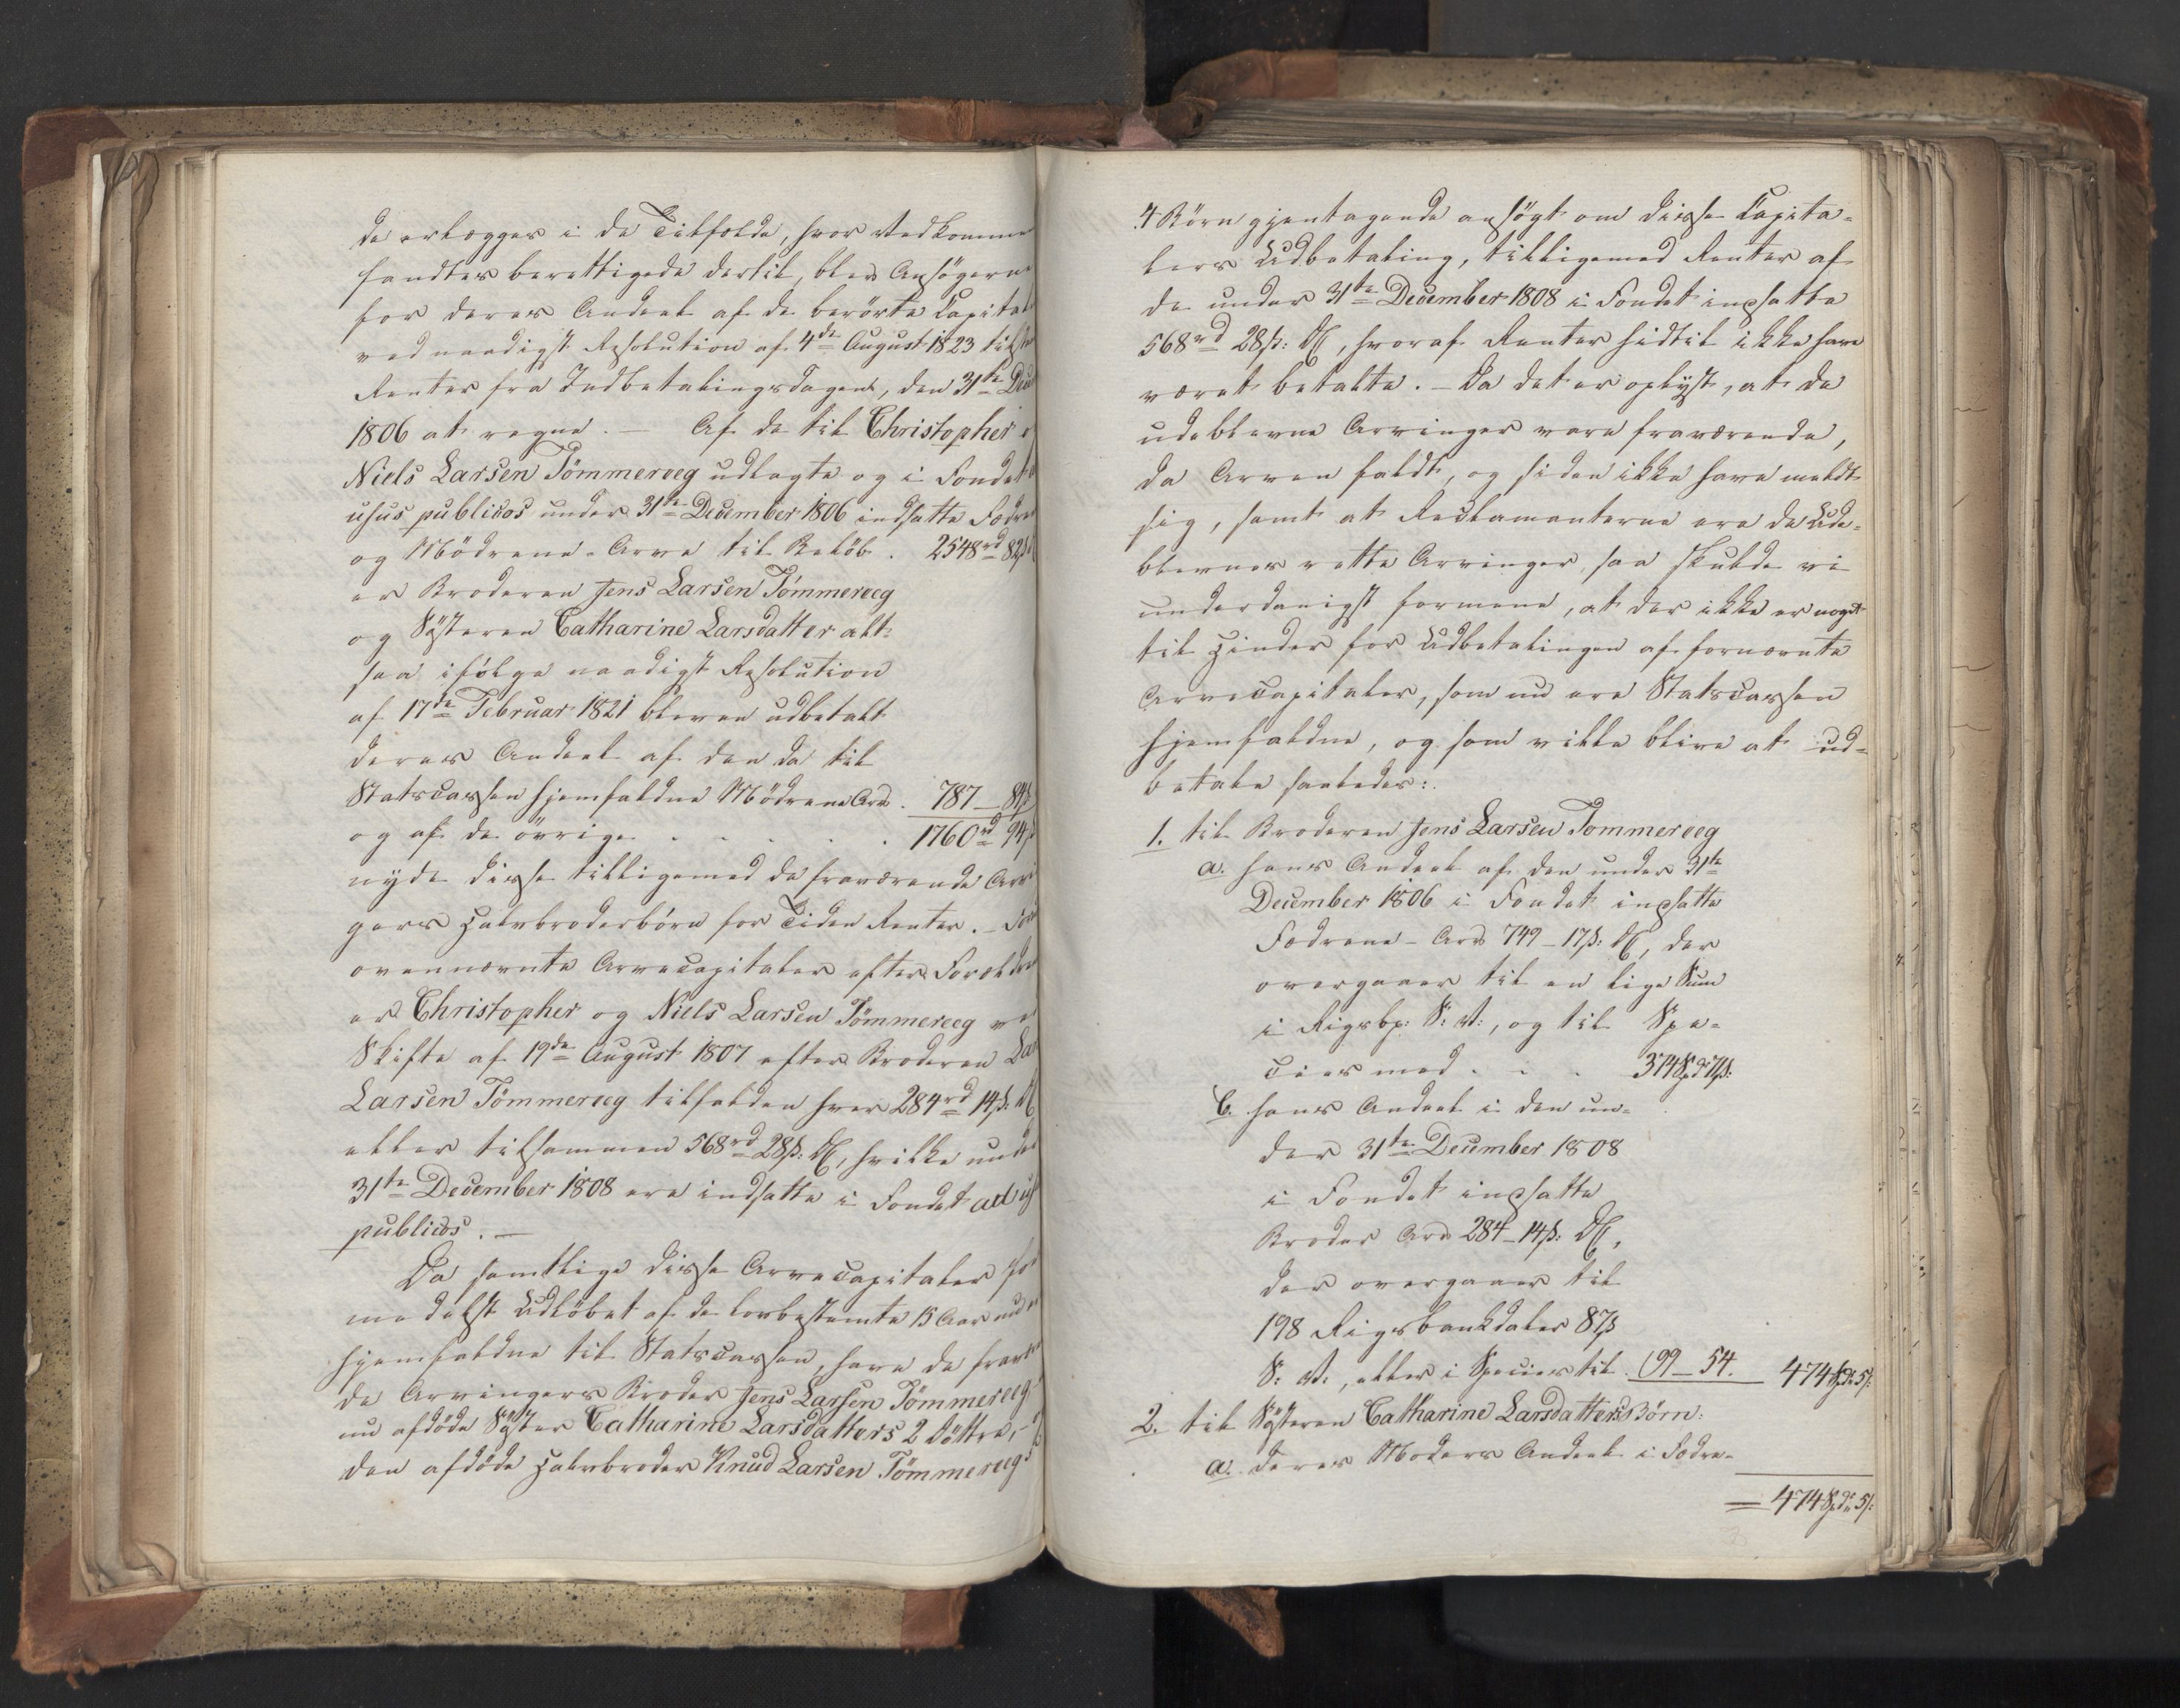 de erlægges i de Tilfælde, hvor Vedkomme
fandtes berettigede dertil, blev Ansøgerne
for deres Andeel af de berørte Capital
ved naadigst Resolution af 4de August 1823 tilst
Renter fra Indbetalingsdagene, den 31te Dec
1806 at regne. — Af de til Christopher o
Niels Larsen Tömmereeg udlagte og i Fondet
usus publicos under 31te December 1806 indsatte Fædre
og Mödrene-Arve til Beløb . 2548rd 82ß
er Broderen Jens Larsen Tömmereeg
og Søsteren Catharine Larsdatter alt-
saa ifølge naadigst Resolution
af 17de Februar 1821 bleven udbetalt
deres Andeel af den da til
Statscassen hjemfaldne Mödrene Arv . 787 — 84ß
og af de øvrige . . . . . 1760rd 94ß
nyde disse tilligemed de fraværende Arvi
gers Halvbroderbörn for Tiden Renter. — For
ovennævnte Arvecapitaler efter Forældre
er Christopher og Niels Larsen Tömmereeg ve
Skifte af 19de August 1807 efter Broderen Lar
Larsen Tömmereeg tilfalden hver 284rd 14ß: DC
eller tilsammen 568rd 28ß: DC, hvilke unde
31te December 1808 ere indsatte i Fondet ad us
publicos. —
Da samtlige disse Arvecapitaler for
medelst Udløbet af de lovbestemte 15 Aar nu er
hjemfaldne til Statscassen, have de fravæ
de Arvingers Broder Jens Larsen Tömmereeg
nu afdøde Søster Catharine Larsdatters 2 Døttre,
den afdøde Halvbroder Knud Larsen Tömmereegs
4 Börn gjentagende ansøgt om disse Capita-
lers Udbetaling, tilligemed Renter af
de under 31te December 1808 i Fondet indsatte
568rd 28ß: DC, hvoraf Renter hidtil ikke have
været betalte. — Da det er oplyst, at de
udeblevne Arvinger vare fraværende,
da Arven faldt, og siden ikke have meldt
sig, samt at Reclamanterne ere de Ude-
blevnes rette Arvinger, saa skulde vi
underdanigst formene, at der ikke er noget
til Hinder for Udbetalingen af fornævnte
Arvecapitaler, som nu ere Statscassen
hjemfaldne, og som ville blive at ud-
betale saaledes:
1. til Broderen Jens Larsen Tommereeg
a. hans Andeel af den under 31te
December 1806 i Fondet indsatte
Fædrene-Arv 749 – 17ß: DC, der
overgaaer til en lige Sum
i Rigsbp: S: V:, og til Spe-
cies med . . . 374 Spd 71ß:
b. hans Andeel i den un-
der 31te December 1808
i Fondet indsatte
Broder Arv 284 – 14ß: DC,
der overgaaer til
198 Rigsbankdaler 87ß
S: V:, eller i Species til . 99 – 54. 474 Spd 5ß:
2. til Søsteren Catharine Larsdatters Börn:
a. deres Moders Andeel i Fædre-
— 474 Spd 5ß: